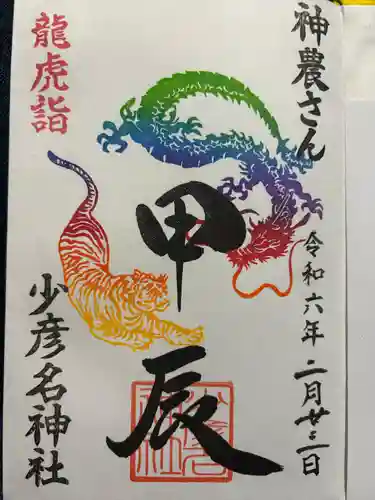 神農さん
令和六年二月廿三日
甲辰
龍虎詣
少彦名神社